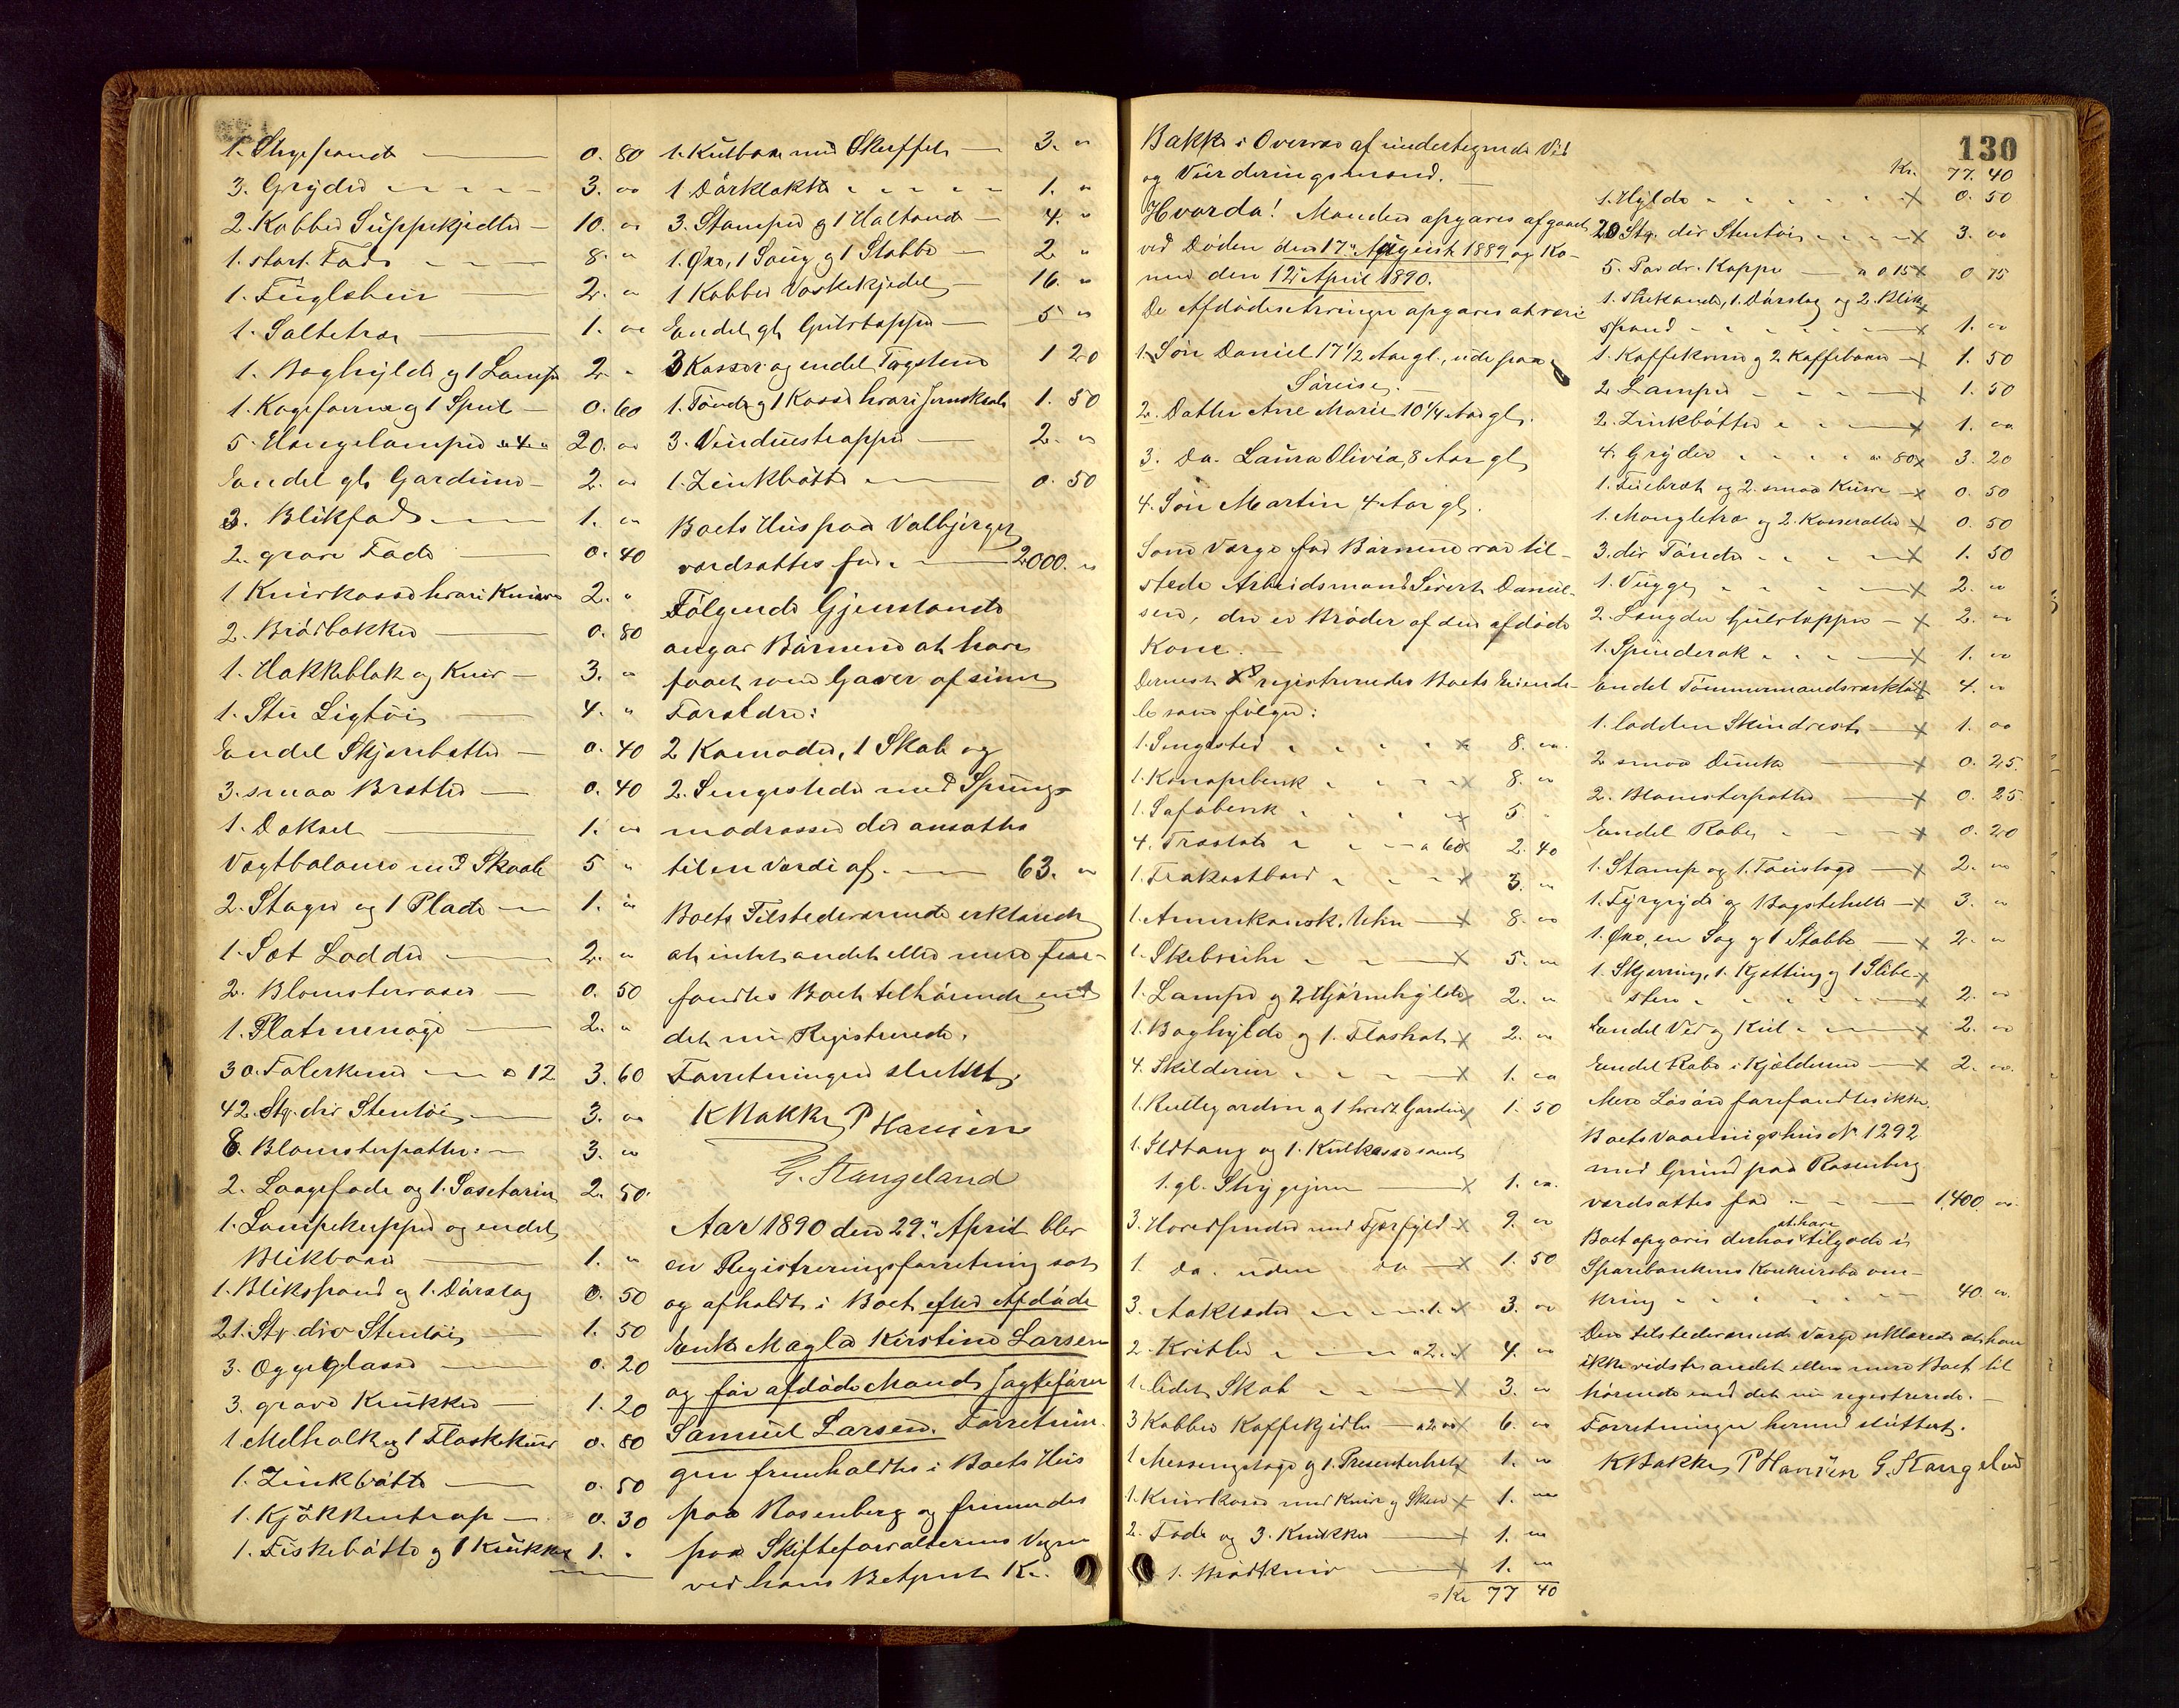 1. Stegepande — 0. 80
3. Gryder — 3. "
2. Kobber Suppekjedler — 10. "
1. stort Fad — 8. "
1. Fuglebuur — 2. "
1. Saltetræ — 1. "
1. Boghylde og 1 Lampe 2. "
1. Kageform og 1 Speil — 0. 60
5. Hængelamper a 4. " 20. "
Endel gl. Gardiner — 2. "
3. Blikfade — 1. "
2. grove Fade — 0. 40
1 Knivkasse hvori Knive 2. "
2. Brødbakker — 0. 80
1. Hakkeblok og Kniv — 3. "
1. Stu Ligtøi — 4. "
Endel Skjærebætter — 0. 40
3. smaa Bratter — 0. 40
1. Døksel — 1. "
Vægtbalance med Skaale 5 "
2. Stager og 1 Plade — 1. "
1. Sæt Lodder — 2. "
2. Blomstervaser — 0. 50
1. Platmenage — 2. "
30. Talerkener a 12 3. 60
42. Stk. div Stentøi — 3. "
8. Blomsterpotter — 3. "
2. Laagefade og 1. Saseterin 2. 50.
1. Lampekuppel og endel
Blikboxer — 1. "
1. Blikspand og 1. Dørslag 0. 50
21. Stk. div Stentøi — 1. 50
3. Æggeglasse — 0. 20
3. grove Krukker — 1. 20
1 Melholk og 1 Flaskekurv 0. 80
1. Zinkbøtte — 0. 50
1. Kjøkkentrap — 0. 30
1. Fiskebøtte og 1 Krukke 1. "
1. Kulboxe med Skuffel — 3. "
1 Dørklokke 1. "
3. Stamper og 1 Halvtønde — 4. "
1. Øxe, 1 Saug og 1 Stabbe — 2 "
1 Kobber Vaskekjedel — 16. "
Endel gl. Gulvtæpper — 5 "
3 Kasser og endel Tagsten 1 20
1. Tønde og 1 Kasse hvori Jernskrab 1. 50
3. Vindustrapper — 2. "
1. Zinkbøtte 0. 50
Boets Hus paa Valbjerget
værdsattes for — 2000. "
Følgende Gjenstande
angav Børnene at have
faaet som Gaver af sine
Forældre:
2 Komoder, 1 Skab og
2. Sengesteder med Spring-
madrasser der ansattes
til en Værdi af — 63. "
Boets Tilstedeværende erklærede
at intet andet eller mere fore-
fandtes Boet tilhørende end
det nu Registrerede.
Forretningen sluttet.
K Bakke P Hansen
G. Stangeland
Aar 1890 den 29. April blev
en Registreringsforretning sat
og afholdt i Boet efter Afdøde
Enke Magla Kirstine Larsen
og før afdøde Mand, Jagtefører
Samuel Larsen. Forretnin-
gen fremholdtes i Boets Hus
paa Rosenberg og fremmedes
paa Skifteforvalterens Vegne
ved hans Betjent K.
Bakke i Overvær af undertegnede Vid
og Vurderingsmænd.
Hvorda! Manden opgaves afgaaet
ved Døden den 17 August 1889 og Ko-
nen den 12 April 1890.
De Afdødes Arvinger opgaves at være
1. Søn Daniel 17 1/2 Aar gl., ude paa
Søreise.
2. Datter Ane Marie 10 1/4 Aar gl.
3. Do. Laura Olivia, 8 Aar gl.
4. Søn Martin 4 Aar gl.
Som Værge for Børnene var til-
stede Arbeidsmand Sivert Daniel-
sen, der er Broder af den afdøde
Kone.
Dernest registreredes Boets Eiende-
le som følger:
1. Sengested x 8. "
1. Kanapebænk x 8. "
1. Safabænk x 5 "
4. Træstole a 60 x 2. 40
1. Frokostbord x 3. "
1. Amerikansk Uhr — x 8. "
1. Skibsuhr — x 5. "
1. Lampe og 2 Hjørnehylder x 2. "
1. Boghylde og 1. Flaskeh x 2. "
4. Skilderier x 1. "
1. Rullegardin og 1 hvidt Gardin x 1. 50
1. Ildtang og 1. Kulkasse samt
1. gl. Strygejern — x 1. "
3. Hovedpuder med Fjærfyld x 9. "
1. Do. uden Do — x 1. 50
3. Aaklæder a 1. " x 3. "
2. Kvitler a 2. " x 4. "
1. lidet Skab x 3. "
3 Kobber Kaffekjedler a 2. " x 6. "
1 Messingstage og 1. Presenterbret x 1. "
1. Knivkasse med Knive og Skeer x 1. "
2. Fade og 3. Krukker — x 1. "
1. Brødkniv — x 1. "
Kr 77 40
130
Kr. 77. 40
1. Hylde x 0. 50
20 Stk. div Stentøi x 3. "
5. Par dr. Kopper — a 0.15 x 0 75
1. Stekande, 1. Dørslag og 2. Blik x
spand x 1. "
1. Kaffekværn og 2. Kaffeboxer x 1. 50
2 Lamper x 1. 50
2. Zinkbøtter x 1. "
4. Gryder a 80 x 3. 20
1. Fuebræt og 2. smaa Kurve x 0. 50
1. Mangletræ og 2. Kasseroller x 0. 50
3. div Tønder x 1. 50
1. Vugge x 2. "
2. Længder Gulvtæppe — x 2. "
1. Spinderok x 1. "
Endel Tømmermandsværktøi x 4. "
1. lodden Skindvest — x 1. "
2 smaa Dunke — x 0. 25.
2. Blomsterpotter — x 0. 25
Endel Reber x 0. 20
1. Stamp og 1. Tønslage — x 2. "
1. Fyrgryde og 1 Bagstehelle — x 3. "
1. Øxe, en Sag og 1 Stabbe — x 2. "
1. Skjæring, 1. Kjetting og 1 Slibe x
sten x 2. "
Endel Ved og Kul x 2. "
Endel Rabe i Kjælderen — x 2. "
Mere Løsøre forefandtes ikke.
Boets Vaaningshus N 1292
med Grund paa Rosenberg
værdsattes for — 1,400. "
Boet opgaves derhos at have tilgode i
Sparebankens Konkursbo om-
kring 40. "
Den tilstedeværende Værge erklærede at han
ikke vidste andet eller mere Boet til
hørende end det nu registrerede. —
Forretningen hermed sluttet.
K Bakke P Hansen G. Stangeland